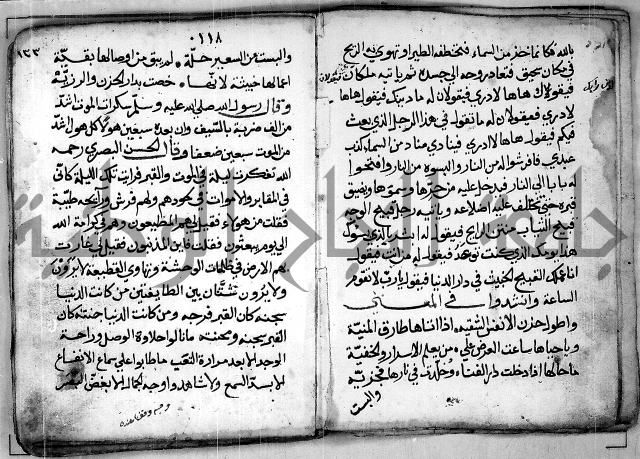 بالله فكأنما خر من السماء فتخطفه الطير او تهوي به الريح
في مكان سحيق فتعاد روحه الى جسده ثم ياتيه ملكان
فيقولان له ما دينك فيقول هاها
لا ادري فيقولان له ما تقول في هذا الرجل الذي بعث
فيكم فيقول هاها لا ادري فينادي مناد من السما كذب
عبدي فافرشوا له من النار والبسوه من النار وافتحوا
له بابا الى النار فيدخل عليه من حرها وسمومها ويضيق
قبره حتى تختلف عليه اضلاعه وياتيه رجل قبيح الوجه
قبيح الثياب منتن الريح فيقول له ابشر بالذي يسؤك
هذا يومك الذي كنت توعد فيقول له من انت فيقول
انا عملك القبيح الخبيث في دار الدنيا فيقول يا رب لا تقوم
الساعة وانشدوا في المعنى
واطول حزن الانفس الشقيه اذا اتاها طارق المنية
وياحياها ساعت العرض على من يعلم الاسرار والخفية
ما حالها اذا دخلت دار الفناء وخلدت في نارها مخزيه
والبست
١١٨
١٢٣
والبست من السعير حلة لم يبق من اوصالها بقية
اعمالها خبيثة لانها خصت بدار الحزن والرزية
وقال رسول الله صلى الله عليه وسلم سكرات الموت اشد
من الف ضربة بالسيف وان بعده سبعين هولا كل هول اشد
من الموت سبعين ضعفا وقال الحسن البصري رحمه
الله تفكرت ليلة في الموت والقبر فرايت تلك الليلة كاني
في المقابر والاموات في لحودهم ولهم فرش ورائحة طيبة
فقلت من هولاء فقيل لي هم المطيعون رهم في كرامة الله
الى يوم يبعثون فقلت فاين المذنبون فقيل لي غارت
بهم الارض في ظلمات الوحشة وتهاوي القطيعة لا يرون
ولا يرون شتان بين الطايفتين من كانت الدنيا
سجنه كان القبر فرجه ومن كانت الدنيا جنته كان
القبر سجنه ومحنته ما نالوا حلاوة الوصل وراحة
الوجد الا بعد مرارة التعب ما طابوا على سماع
الا بسد السمع ولا شاهدوا وجه الجمال الا بغض البصر